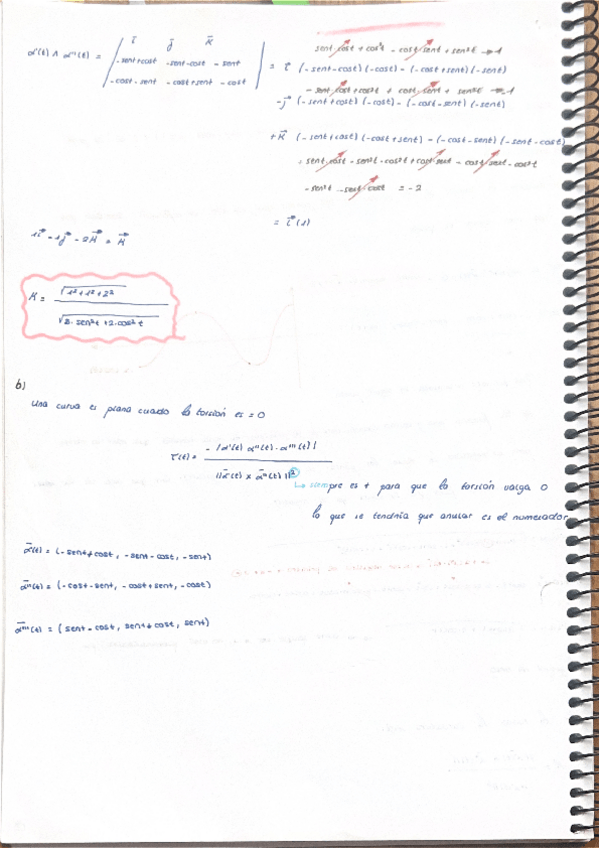 α'(t) ∧ α''(t) = | i⃗ j⃗ k⃗
-sent+cost -sent-cost -sent
-cost-sent -cost+sent -cost |
sent cost + cos²t - cost sent + sen²t → 1
= i⃗ (-sent-cost)(-cost) - (-cost+sent)(-sent)
- sent cost + cos²t + cost sent + sen²t → 1
-j⃗ (-sent+cost)(-cost) - (-cost-sent)(-sent)
+k⃗ (-sent+cost)(-cost+sent) - (-cost-sent)(-sent-cost)
= sent cost - sen²t - cos²t + cost sent - cost sent - cos²t
- sen²t - sent cost = -2
= i⃗ (1)
1i⃗ - 1j⃗ - 2k⃗ = k⃗
K = √1²+1²+2² / √2·sen²t+2·cos²t
b)
Una curva es plana cuado la torsión es = 0
τ(t) = -|α'(t) α''(t)·α'''(t)| / ||α⃗(t) x α⃗''(t)||²
↳ siempre es + para que la torsión valga 0
lo que se tendría que anular es el numerador
α⃗(t) = (-sent+cost, -sent-cost, -sent)
α⃗''(t) = (-cost-sent, -cost+sent, -cost)
α⃗'''(t) = (sent-cost, sent+cost, sent)